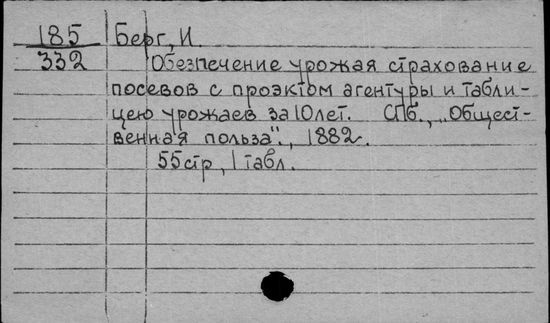 185 Берг, И.
332 Обезпечение урожая страхование
посевов с проэктом агентуры и табли-
цею урожаев за 10 лет. Спб., „Общест-
венная польза"., 1882.
55 стр, 1 табл.